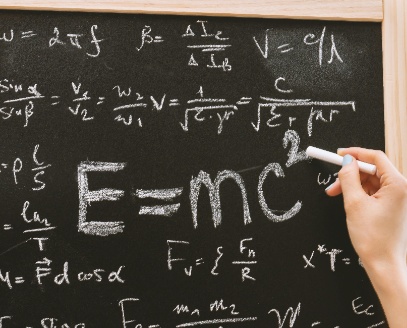 ω = 2πf β = ΔI_c / ΔI_B V = c/λ
sin α / sin β = v₁ / v₂ = w₂ / w₁ V = 1 / √(ε·μ) = c / √(εᵣ μᵣ)
= ρ l / S
E = mc²
= ln₂ / T
Fᵥ = { Fₙ / R x*T =
= F⃗ d cos α
m₁ m₂